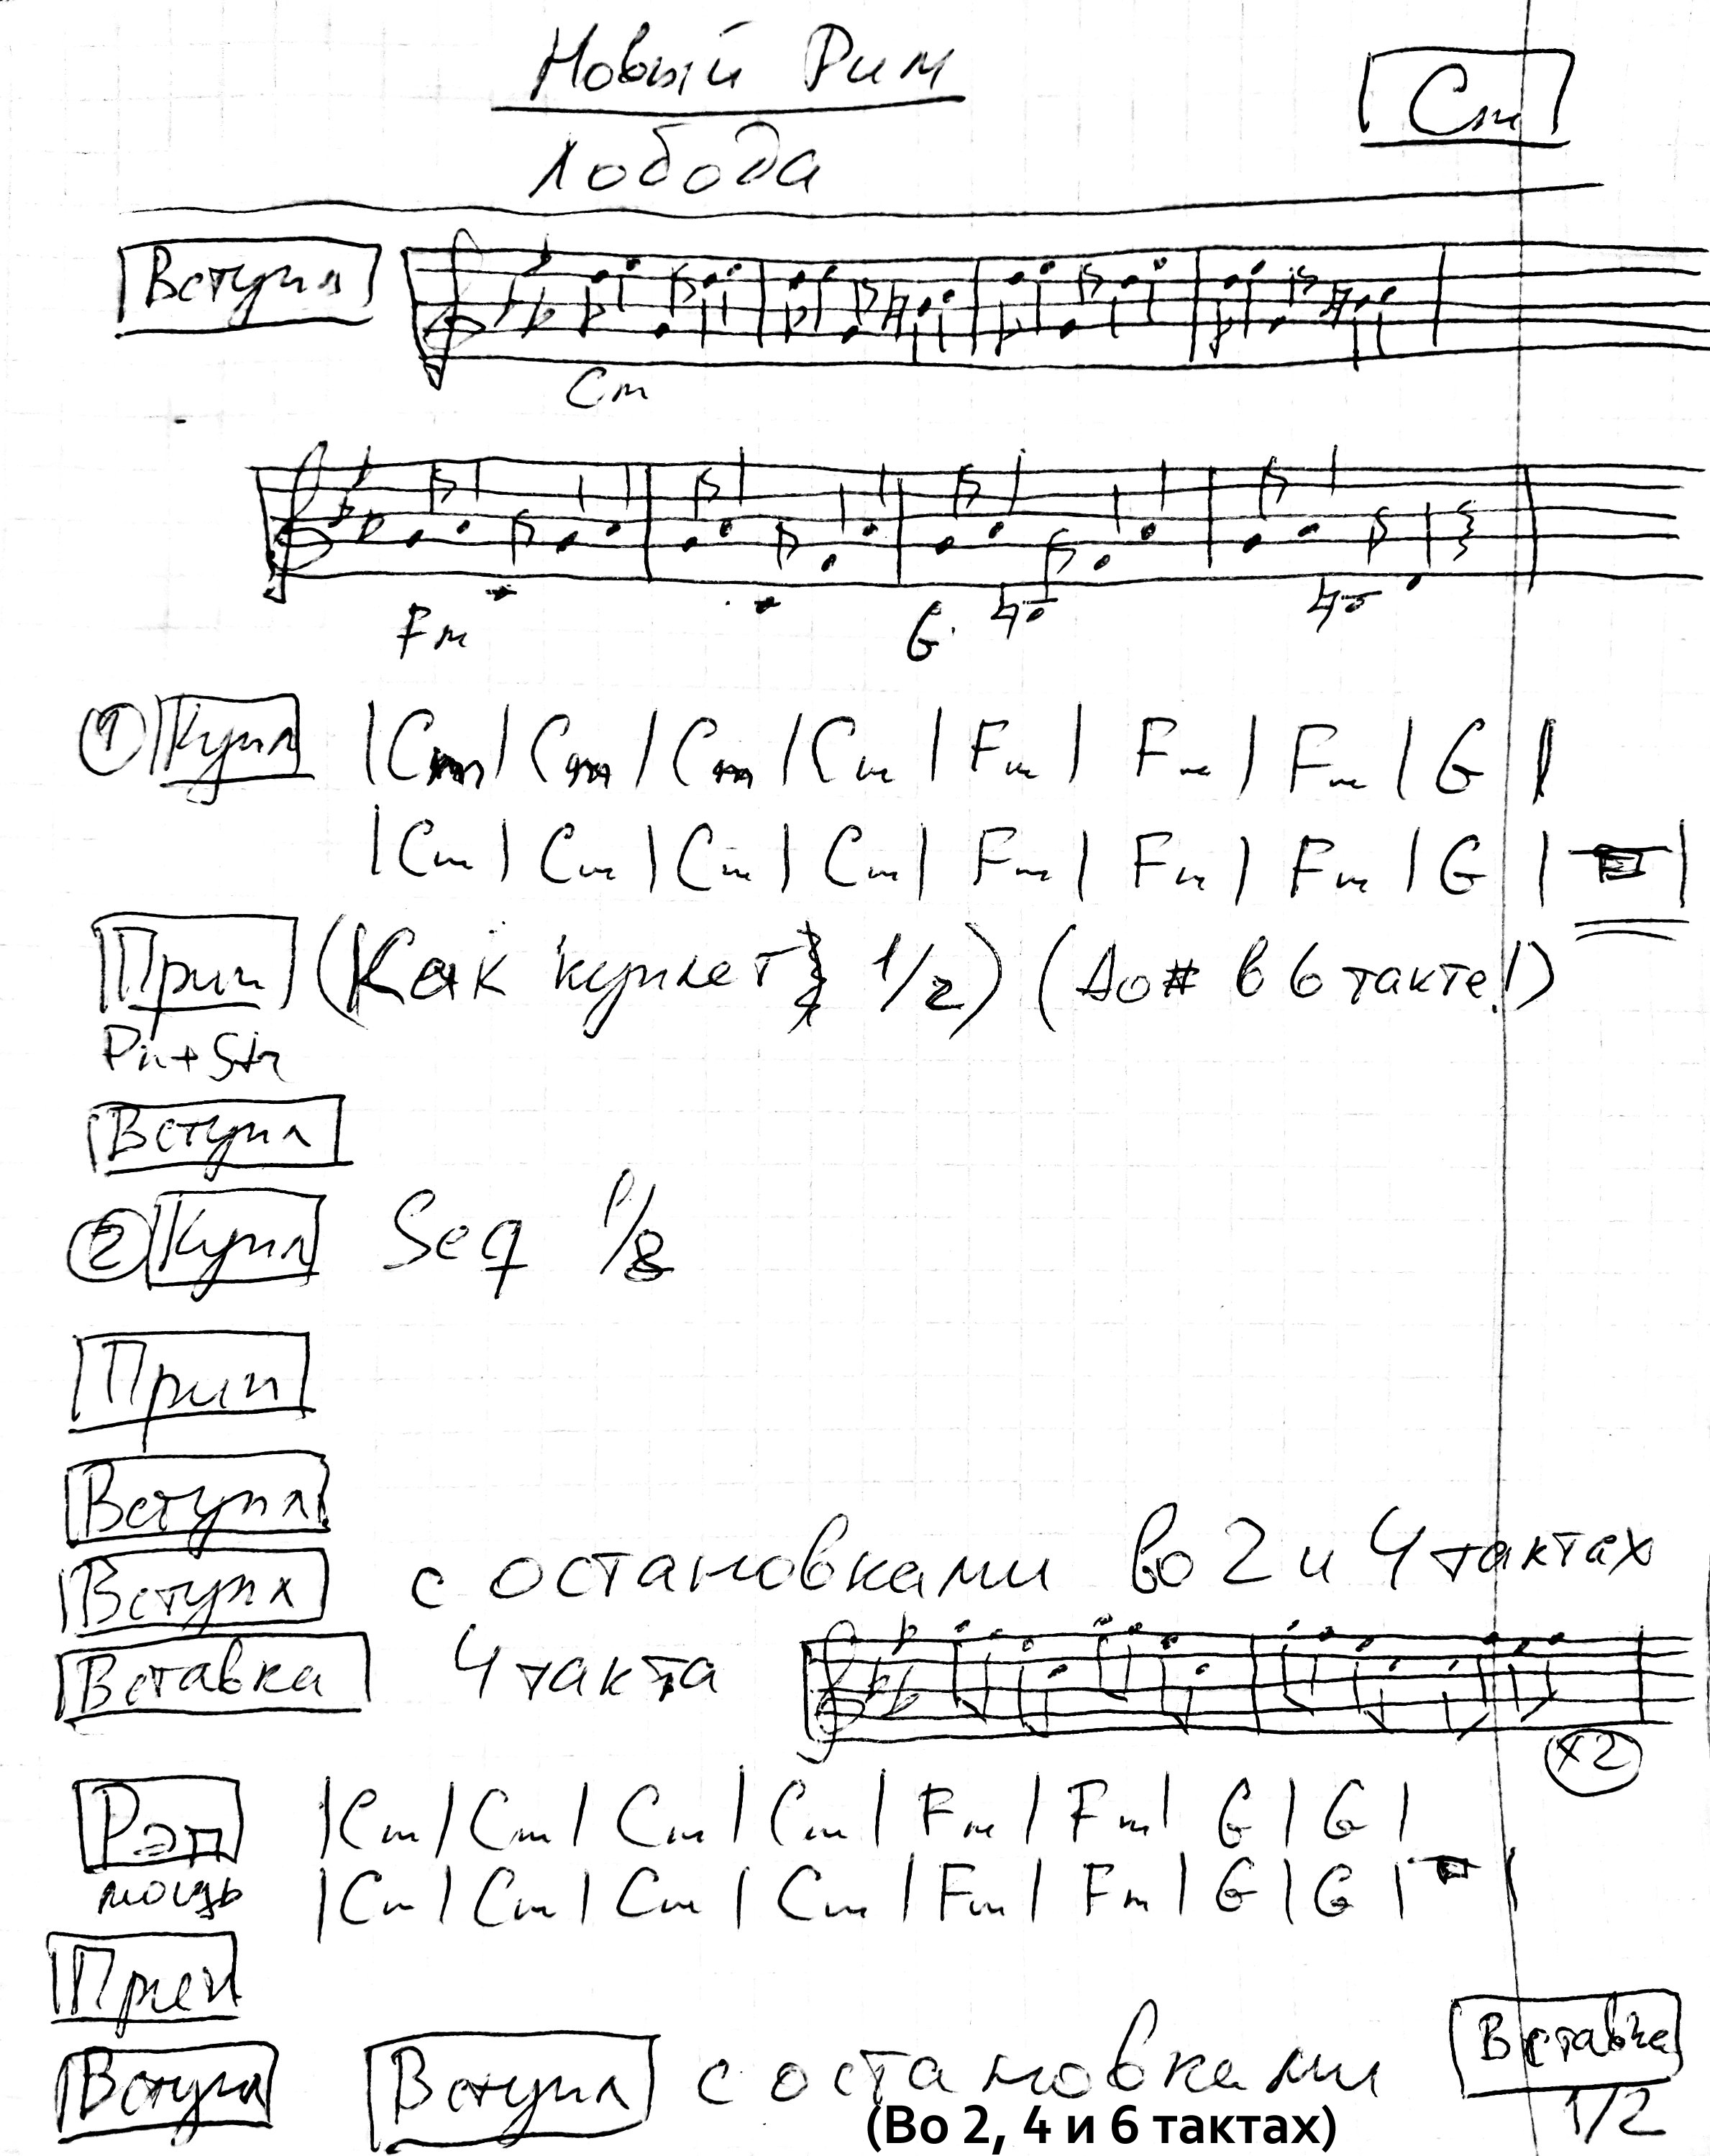 Новый Рим
Cm
Лобода
Вступл
Cm
Fm G
① Купл |Cm|Cm|Cm|Cm|Fm|Fm|Fm|G|
|Cm|Cm|Cm|Cm|Fm|Fm|Fm|G| |
Прип (Как куплет 1/2) (До# в 6 такте!)
Pn+Str
Вступл
② Купл Seq 1/8
Прип
Вступл
Вступл с остановками во 2 и 4 тактах
Вставка 4 такта
x2
Рэп |Cm|Cm|Cm|Cm|Fm|Fm|G|G|
мощь |Cm|Cm|Cm|Cm|Fm|Fm|G|G| |
Прип
Вступл Вступл с остановками Вставка
(Во 2, 4 и 6 тактах) 1/2